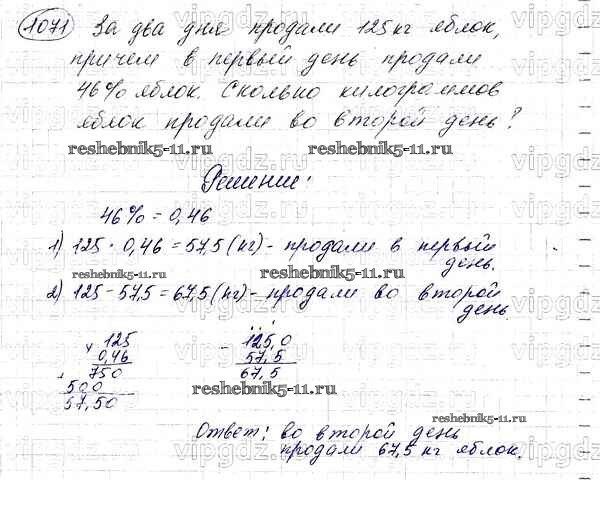 1071 За два дня продали 125 кг яблок,
причем в первый день продали
46% яблок. Сколько килограммов
яблок продали во второй день?
reshebnik5-11.ru reshebnik5-11.ru
Решение:
46% = 0,46
1) 125 · 0,46 = 57,5 (кг) - продали в первый
день.
reshebnik5-11.ru reshebnik5-11.ru
2) 125 - 57,5 = 67,5 (кг) - продали во второй
день.
× 125 - 125,0
0,46 57,5
+ 750 67,5
500
57,50
reshebnik5-11.ru
reshebnik5-11.ru
Ответ: во второй день
продали 67,5 кг яблок.